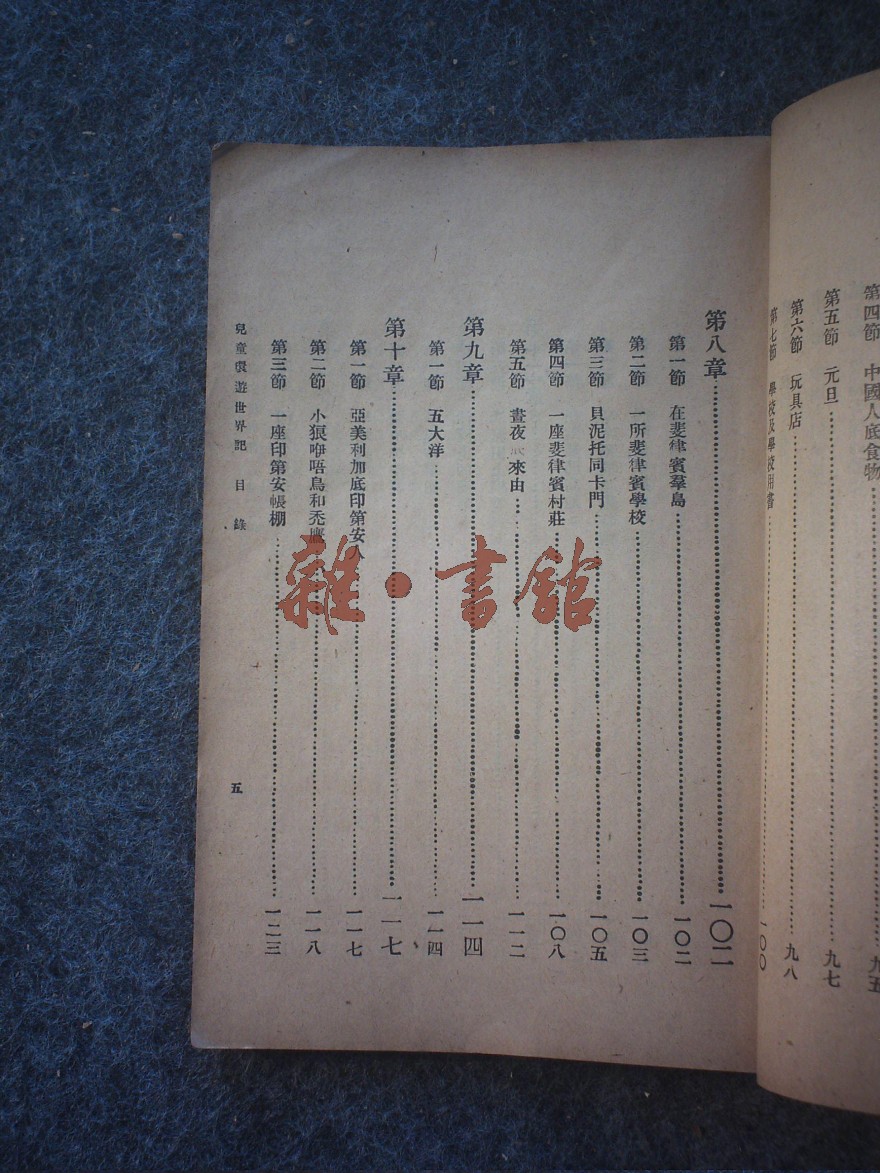 第四節 中國人底食物 九五
第五節 元旦 九七
第六節 玩具店 九八
第七節 學校及學校用書 一〇〇
第八章 一〇二
第一節 在斐律賓羣島 一〇二
第二節 一所斐律賓學校 一〇三
第三節 貝泥托同卡門 一〇五
第四節 一座斐律賓村莊 一〇八
第五節 晝夜 來由 一一二
第九章 一一四
第一節 五大洋 一一四
第十章 一一七
第一節 亞美利加底印第安人 一一七
第二節 小狼咿唔鳥和禿鷹 一一八
第三節 一座印第安帳棚 一二三
兒童環遊世界記 目錄
五
雜·書館